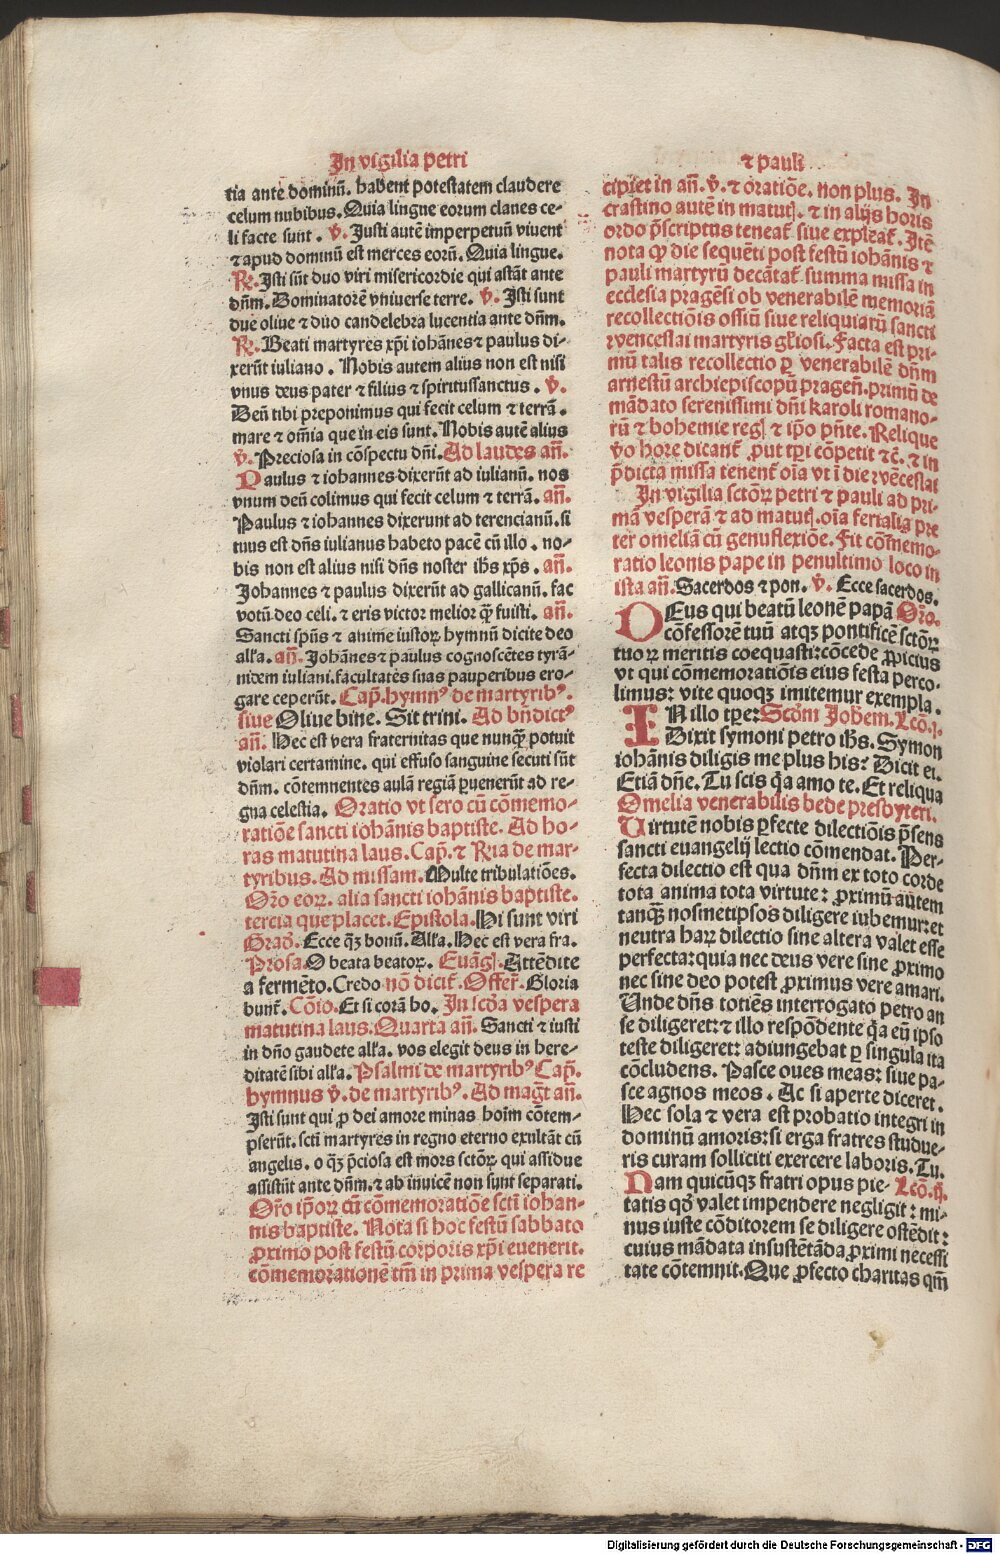 In vigilia petri
tia ante dominū. habent potestatem claudere
celum nubibus. Quia lingue eorum claues ce-
li facte sunt. v̄. Justi autē imperpetuū viuent
⁊ apud dominū est merces eorū. Quia lingue.
R̄. Isti sūt duo viri misericordie qui astāt ante
dn̄m. Dominatorē vniuerse terre. v̄. Isti sunt
due oliue ⁊ duo candelebra lucentia ante dn̄m.
R̄. Beati martyres xp̄i iohānes ⁊ paulus di-
xerūt iuliano. Nobis autem alius non est nisi
vnus deus pater ⁊ filius ⁊ spiritussanctus. v̄.
Ben̄ tibi preponimus qui fecit celum ⁊ terrā.
mare ⁊ om̄ia que in eis sunt. Nobis autē alius
v̄. Preciosa in cōspectu dn̄i. Ad laudes an̄.
Paulus ⁊ iohannes dixerūt ad iulianū. nos
vnum deū colimus qui fecit celum ⁊ terrā. an̄.
Paulus ⁊ iohannes dixerunt ad terencianū. si
tuus est dn̄s iulianus habeto pacē cū illo. no-
bis non est alius nisi dn̄s noster ih̄s xp̄s. an̄.
Johannes ⁊ paulus dixerūt ad gallicanū. fac
votū deo celi. ⁊ eris victor melior q̄ fuisti. an̄.
Sancti sp̄ns ⁊ anime iustoꝝ hymnū dicite deo
all'a. an̄. Johānes ⁊ paulus cognoscētes tyrā-
nidem iuliani. facultates suas pauperibus ero-
gare ceperūt. Cap̄. hymnꝰ de martyribꝰ.
siue Oliue bine. Sit trini. Ad bn̄dictꝰ
an̄. Hec est vera fraternitas que nunqꝫ potuit
violari certamine. qui effuso sanguine secuti sūt
dn̄m. cōtemnentes aulā regiā ꝑuenerūt ad re-
gna celestia. Oratio vt sero cū cōmemo-
ratiōe sancti iohānis baptiste. Ad ho-
ras matutina laus. Cap̄. ⁊ R̄ia de mar-
tyribus. Ad missam. Multe tribulatiōes.
Or̄o eoꝝ. alia sancti iohānis baptiste.
tercia que placet. Epistola. Hi sunt viri
Grad̄. Ecce qꝫ bonū. All'a. Hec est vera fra.
Prosa O beata beatoꝝ. Euāgl̄. Attēdite
a fermēto. Credo nō dicit̄. Offer̄. Gloria
bunt̄. Cōio. Et si corā ho. In scd̄a vespera
matutina laus. Quarta an̄. Sancti ⁊ iusti
in dn̄o gaudete all'a. vos elegit deus in here-
ditatē sibi all'a. Psalmi de martyribꝰ Cap̄.
hymnus v̄. de martyribꝰ. Ad maḡt an̄.
Isti sunt qui ꝓ dei amore minas hoīm cōtem-
pserūt. sctī martyres in regno eterno exultāt cū
angelis. o qꝫ p̄ciosa est mors sctōꝝ qui assidue
assistūt ante dn̄m. ⁊ ab inuicē non sunt separati.
Or̄o ip̄oꝝ cū cōmemoratiōe sctī iohan-
nis baptiste. Nota si hoc festū sabbato
ꝓximo post festū corporis xp̄i euenerit.
cōmemorationē tm̄ in prima vespera re
⁊ pauli
cipiet in an̄. v̄. ⁊ oratiōe. non plus. In
crastino autē in matuꝭ. ⁊ in alijs horis
ordo p̄scriptus teneat̄ siue expleat̄. Itē
nota ꝙ die sequēti post festū iohānis ⁊
pauli martyrū decātat̄ summa missa in
ecclesia pragēsi ob venerabilē memoriā
recollectiōis ossiū siue reliquiarū sancti
wenceslai martyris gl'iosi. Facta est pri-
mū talis recollectio ꝑ venerabilē dn̄m
arnestū archiepiscopū pragen̄. primū de
mādato serenissimi dn̄i karoli romano-
rū ⁊ bohemie regꝭ ⁊ ip̄o pn̄te. Relique
v̊o hore dicant̄ ꝓut tꝑi cōpetit ⁊c̄. ⁊ in
p̄dicta missa tenent̄ oīa vt ī die wēceslai
In vigilia sctōꝝ petri ⁊ pauli ad pri-
mā vesperā ⁊ ad matuꝭ. oīa ferialia pre
ter omeliā cū genuflexiōe. Fit cōmemo-
ratio leonis pape in penultimo loco in
ista an̄. Sacerdos ⁊ pon. v̄. Ecce sacerdos.
DEus qui beatū leonē papā Or̄o.
cōfessorē tuū atqꝫ pontificē sctōꝝ
tuoꝝ meritis coequasti: cōcede ꝓpicius
vt qui cōmemoratiōis eius festa perco-
limus: vite quoqꝫ imitemur exempla.
IN illo tꝑe: Scd̄m Joh̄em. Lcō. j.
Dixit symoni petro ih̄s. Symon
iohānis diligis me plus his? Dicit ei.
Etiā dn̄e. Tu scis q̄a amo te. Et reliqua
Omelia venerabilis bede presbyteri.
Uirtutē nobis ꝑfecte dilectiōis p̄sens
sancti euangelij lectio cōmendat. Per-
fecta dilectio est qua dn̄m ex toto corde
tota anima tota virtute: ꝓximū autem
tanqꝫ nosmetipsos diligere iubemur: et
neutra haꝝ dilectio sine altera valet esse
perfecta: quia nec deus vere sine ꝓximo
nec sine deo potest ꝓximus vere amari.
Unde dn̄s totiēs interrogato petro an
se diligeret: ⁊ illo respōdente q̄a eū ipso
teste diligeret: adiungebat ꝑ singula ita
cōcludens. Pasce oues meas: siue pa-
sce agnos meos. Ac si aperte diceret.
Hec sola ⁊ vera est probatio integri in
dominū amoris: si erga fratres studue-
ris curam solliciti exercere laboris. Tu.
Nam quicūqꝫ fratri opus pie- Lcō. ij.
tatis qd̄ valet impendere negligit: mi-
nus iuste cōditorem se diligere ostēdit:
cuius mādata insustētāda ꝓximi necessi
tate cōtemnit. Que ꝓfecto charitas qm̄
Digitalisierung gefördert durch die Deutsche Forschungsgemeinschaft - DFG